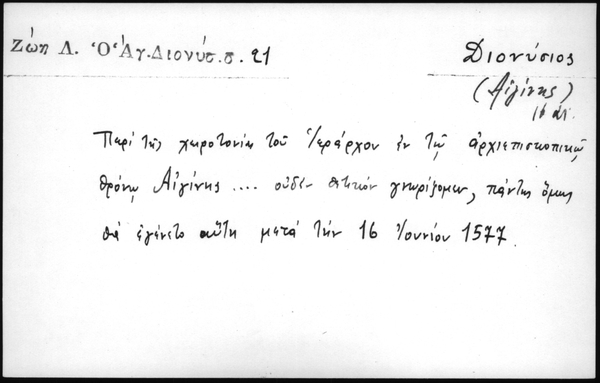 Ζώη Λ. Ὁ Ἁγ. Διονύσ. σ. 21
Διονύσιος
(Αἰγίνης)
16 αἰ.
Περί τῆς χειροτονίας τοῦ Ἱεράρχου ἐν τῷ ἀρχιεπισκοπικῷ
θρόνῳ Αἰγίνης .... οὐδέν θετικόν γνωρίζομεν, πάντως ὅμως
θά ἐγένετο αὕτη μετά τήν 16 Ἰουνίου 1577.